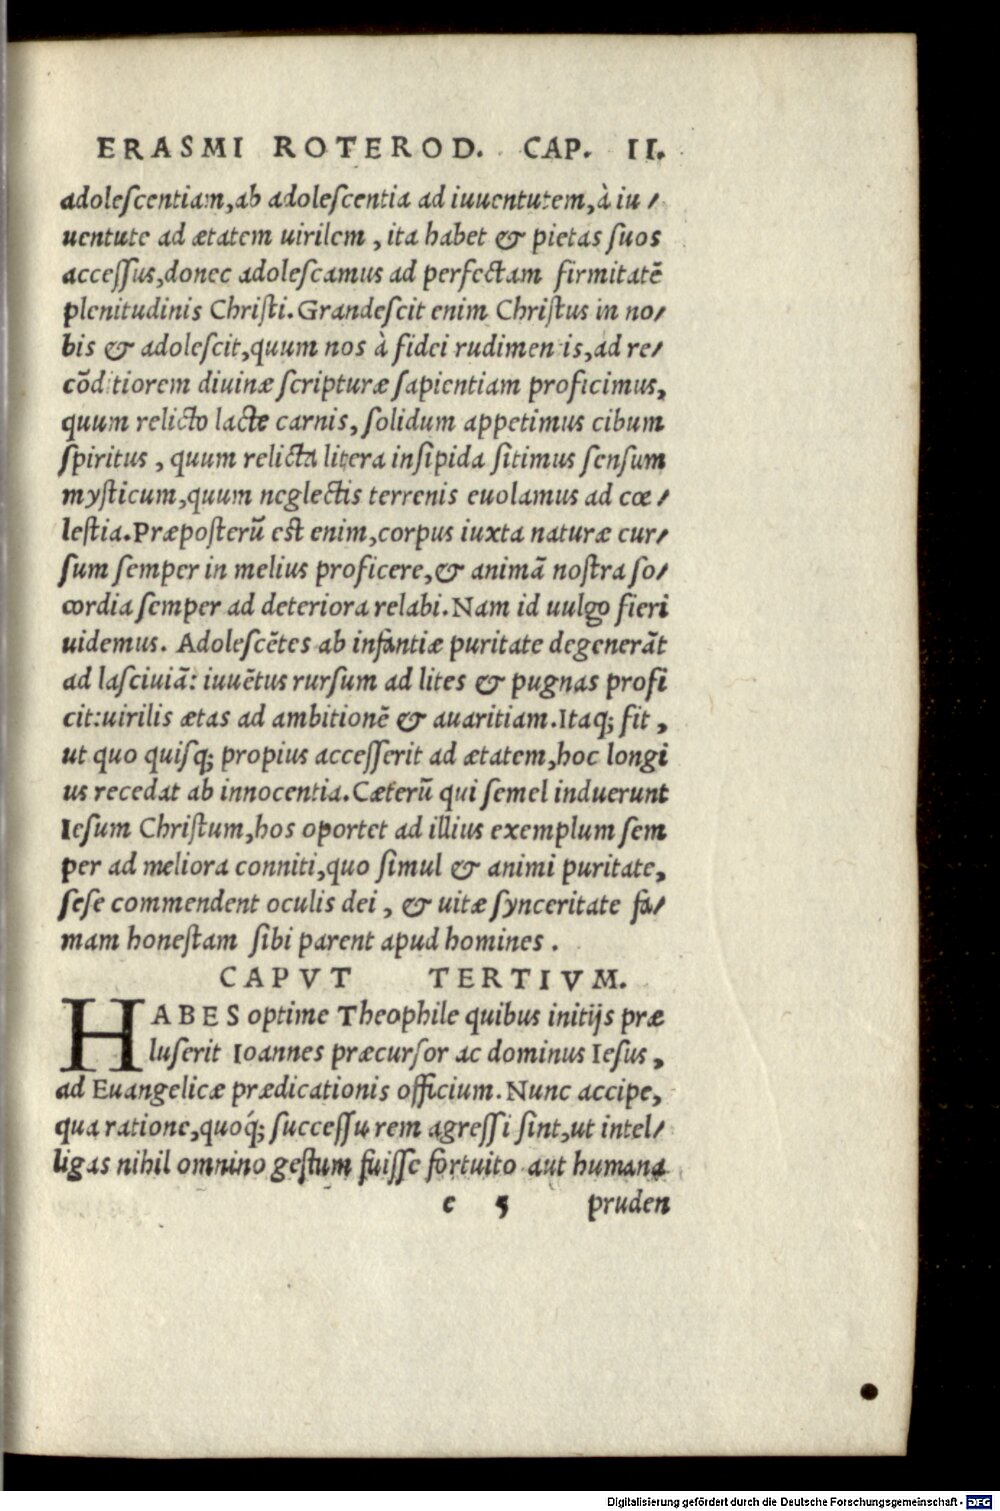 ERASMI ROTEROD. CAP. II.
adoleſcentiam,ab adoleſcentia ad iuuentutem,à iu/
uentute ad ætatem uirilem , ita habet & pietas ſuos
acceſſus,donec adoleſcamus ad perfectam firmitatē
plenitudinis Chriſti. Grandeſcit enim Chriſtus in no/
bis & adoleſcit,quum nos à fidei rudimentis,ad re/
cōditiorem diuinæ ſcripturæ ſapientiam proficimus,
quum relicto lacte carnis, ſolidum appetimus cibum
ſpiritus , quum relicta litera inſipida ſitimus ſenſum
myſticum,quum neglectis terrenis euolamus ad cœ/
leſtia.Præpoſterū eſt enim,corpus iuxta naturæ cur/
ſum ſemper in melius proficere,& animā noſtra ſo/
cordia ſemper ad deteriora relabi. Nam id uulgo fieri
uidemus. Adoleſcētes ab infantiæ puritate degenerāt
ad laſciuiā: iuuētus rurſum ad lites & pugnas profi
cit:uirilis ætas ad ambitionē & auaritiam. Itaq; fit ,
ut quo quiſq; propius acceſſerit ad ætatem,hoc longi
us recedat ab innocentia. Cæterū qui ſemel induerunt
Ieſum Chriſtum,hos oportet ad illius exemplum ſem
per ad meliora conniti,quo ſimul & animi puritate,
ſeſe commendent oculis dei , & uitæ ſynceritate fa/
mam honeſtam ſibi parent apud homines .
CAPVT TERTIVM.
HABES optime Theophile quibus initijs præ
luſerit Ioannes præcurſor ac dominus Ieſus ,
ad Euangelicæ prædicationis officium. Nunc accipe,
qua ratione,quoq́; ſucceſſu rem agreſſi ſint,ut intel/
ligas nihil omnino geſtum fuiſſe fortuito aut humana
c 5 pruden
Digitalisierung gefördert durch die Deutsche Forschungsgemeinschaft - DFG